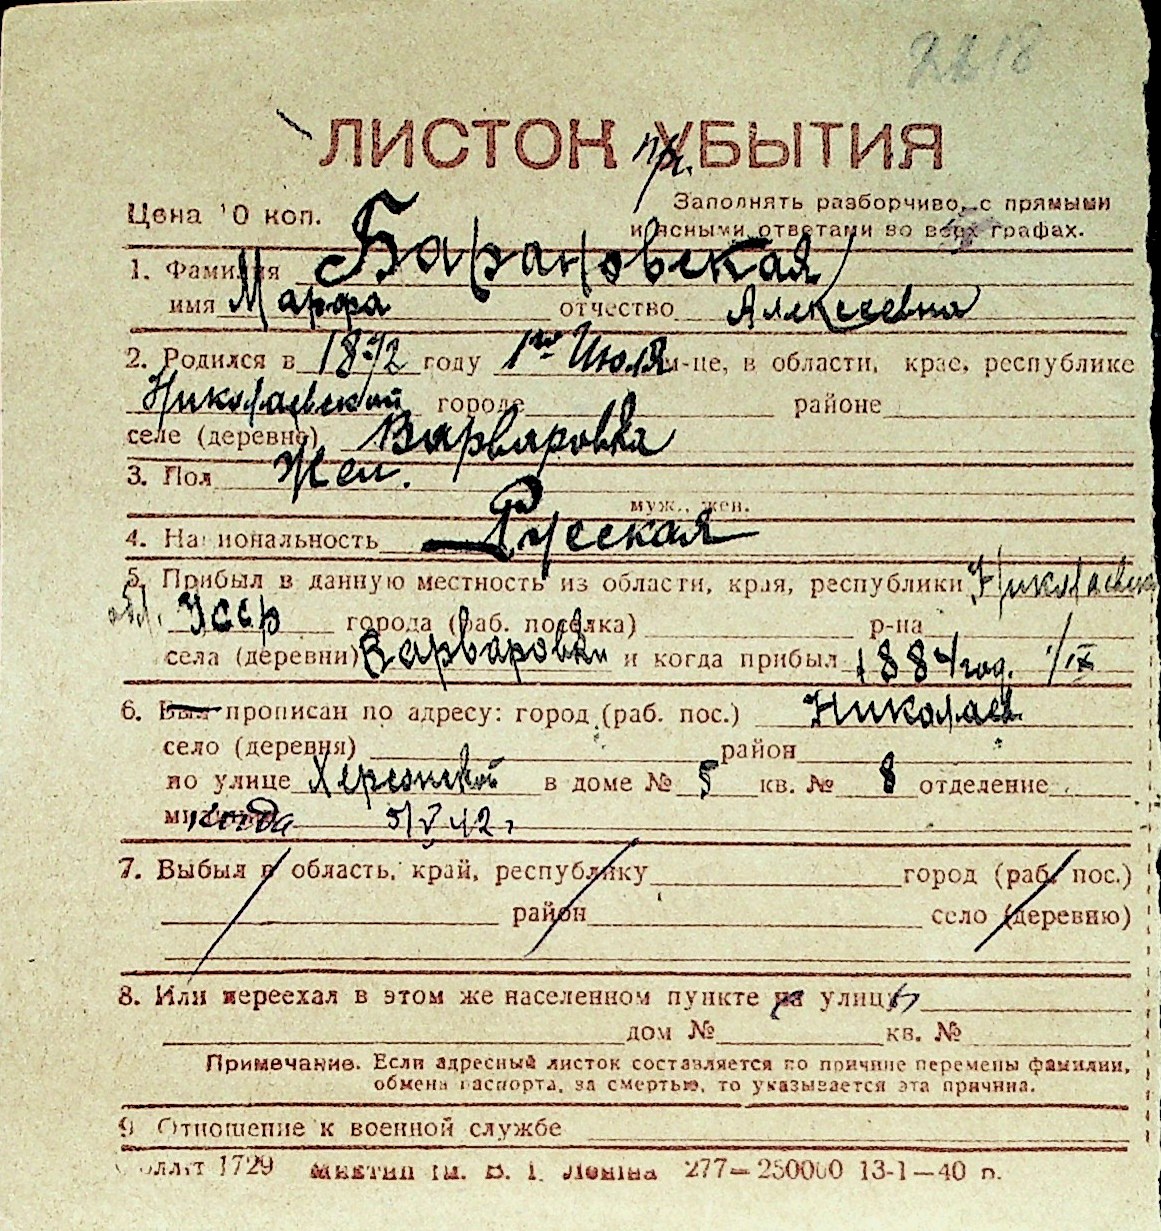 2218
ЛИСТОК УБЫТИЯ
пр.
Цена 10 коп.
Заполнять разборчиво, с прямыми
и ясными ответами во всех графах.
1. Фамилия Барановская
имя Марфа отчество Алексеевна
2. Родился в 1872 году 1го Июля м-це, в области, крае, республике
Николаевской городе районе
селе (деревне) Варваровка
3. Пол Жен.
муж., жен.
4. Национальность Русская
5. Прибыл в данную местность из области, края, республики Николаевск
обл. УССР города (раб. поселка) р-на
села (деревни) Варваровки и когда прибыл 1884 год. 1/IX
6. Был прописан по адресу: город (раб. пос.) Николаев
село (деревня) район
по улице Херсонской в доме № 5 кв. № 8 отделение
когда 5/V 42 г
7. Выбыл в область, край, республику город (раб. пос.)
район село (деревню)
8. Или переехал в этом же населенном пункте на улицу
дом № кв. №
Примечание. Если адресный листок составляется по причине перемены фамилии,
обмена паспорта, за смертью, то указывается эта причина.
9. Отношение к военной службе
1729 им. В. І. Леніна 277—250000 13-1—40 р.